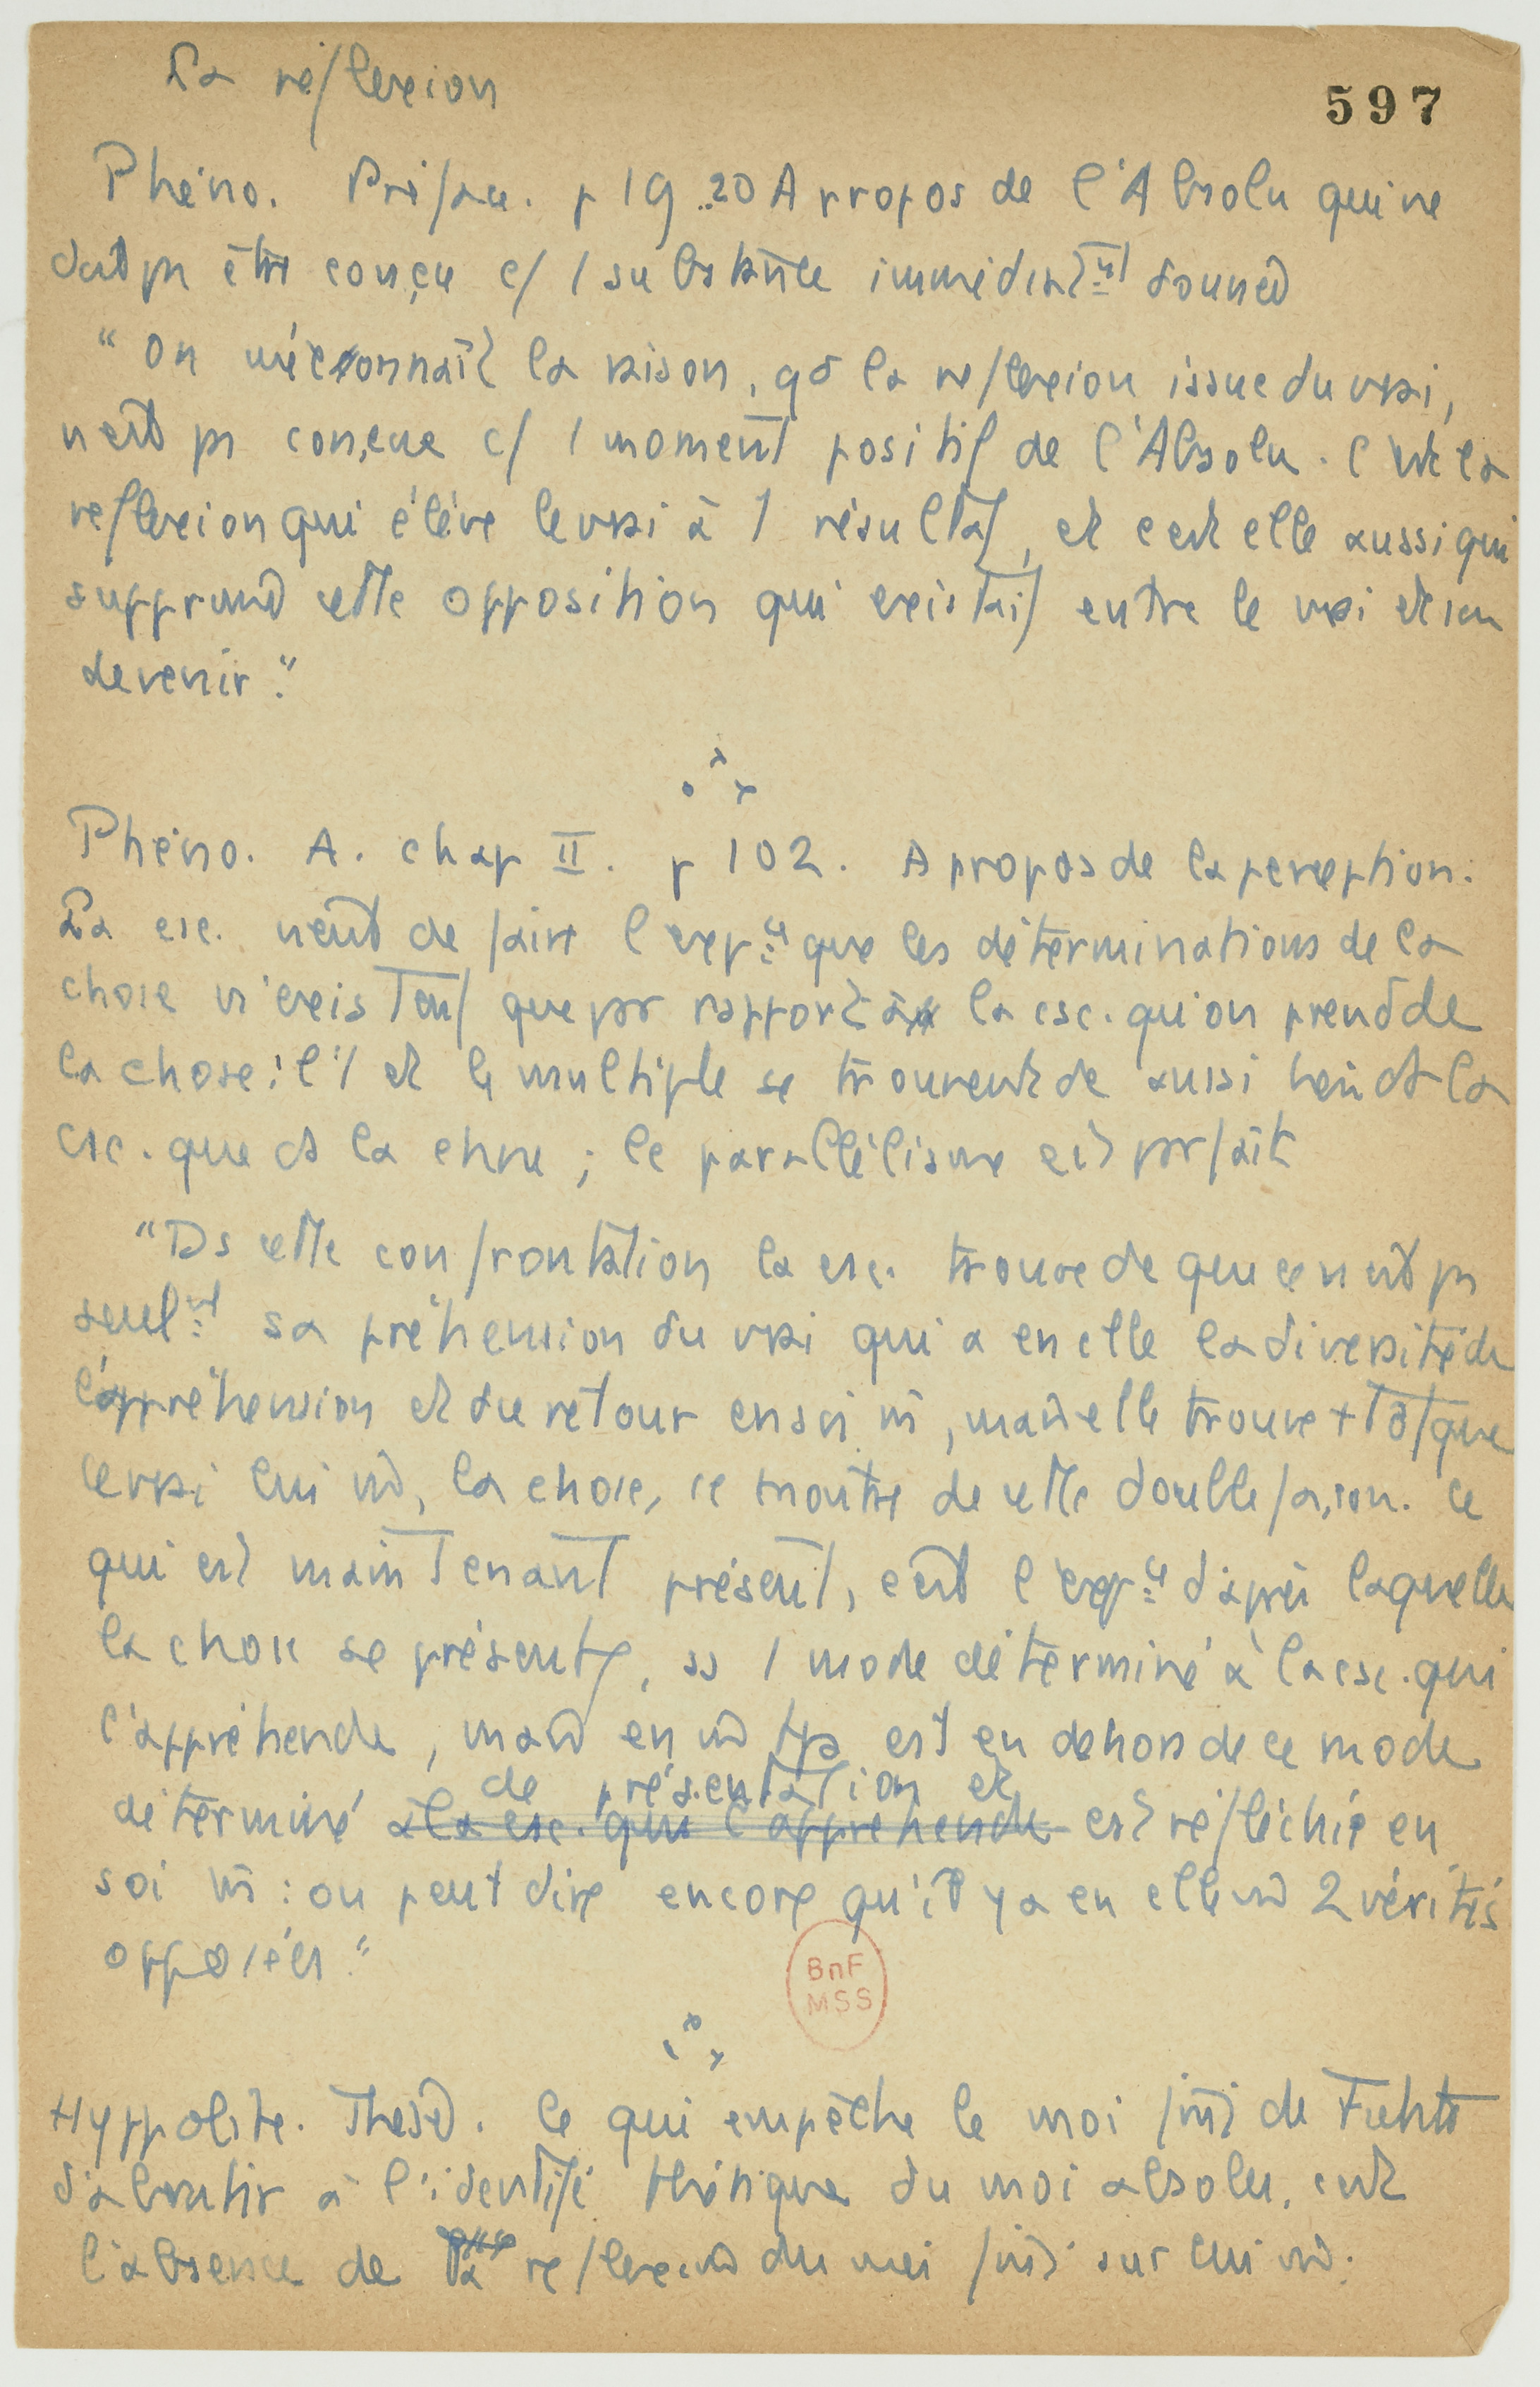 La réflexion
597
Phéno. Préface. p 19..20 A propos de l'Absolu qui ne
doit pas être conçu c/ 1 substance immédiatmt donnée
"On méconnaît la raison, qd la réflexion issue du vrai,
n'est pas conçue c/ 1 moment positif de l'Absolu. C'est la
reflexion qui élève le vrai à 1 résultat, et c'est elle aussi qui
supprime cette opposition qui existait entre le vrai et son
devenir."
Phéno. A. chap II. p 102. A propos de la perception.
La csc. vient de faire l'expce que les déterminations de la
chose n'existent que par rapport à la csc. qu'on prend de
la chose : l'1 et le multiple se trouvent de aussi bien ds la
csc. que ds la chose ; le parallélisme est parfait
"Ds cette confrontation la csc. trouve de que ce n'est pas
seulmt sa préhension du vrai qui a en elle la diversité de
l'appréhension et du retour en soi m, mais elle trouve + tôt que
le vrai lui m, la chose, se montre de cette double façon. Ce
qui est maintenant présent, c'est l'expce d'après laquelle
la chose se présente, ss 1 mode déterminé à la csc. qui
l'appréhende, mais en m tps est en dehors de ce mode
de présentation et
déterminé à la csc. qui l'appréhende est réfléchie en
soi m : on peut dire encore qu'il y a en elle m 2 vérités
opposées."
BnF
MSS
Hyppolite. Thèse. Ce qui empêche le moi fini de Fichte
d'aboutir à l'identité thétique du moi absolu, c'est
l'absence de la reflexion du moi fini sur lui m.